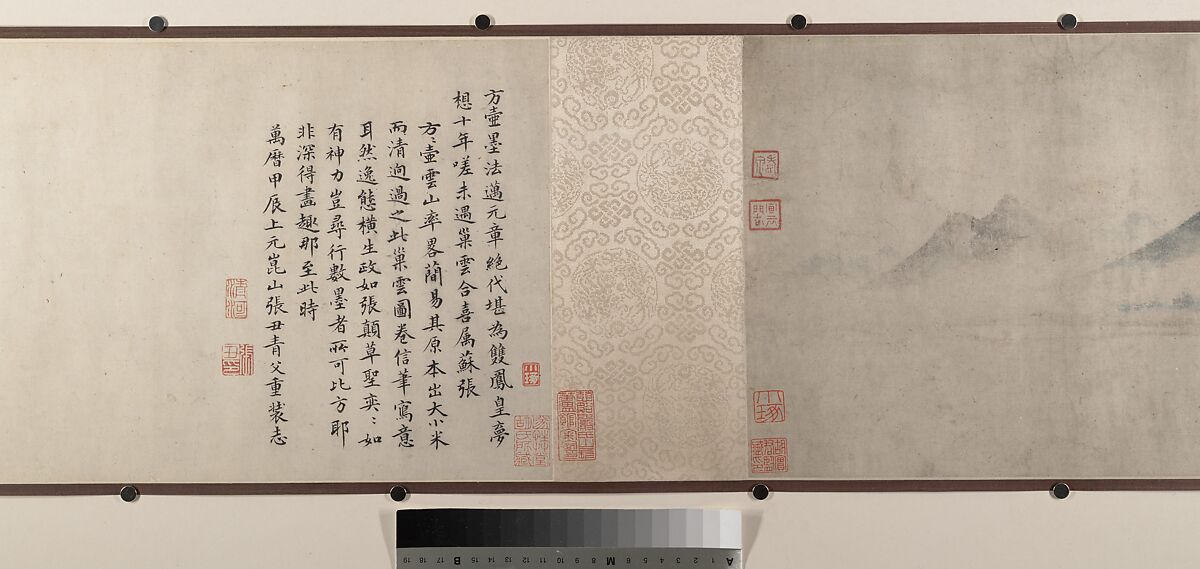 方壺墨法邁元章絕代堪為雙鳳皇夢
想十年嗟未遇巢雲合喜属蘇張
方〻壺雲山率畧簡易其原本出大小米
而清迥過之此巢雲圖卷信筆寫意
耳然逸態橫生政如張顛草聖奕〻如
有神力豈尋行數墨者所可比方耶
非深得畫趣那至此時
萬曆甲辰上元崑山張丑青父重裝志
清河
張丑
19 18 17 B 15 14 13 12 11 10 9 8 M 6 5 4 3 2 1 A